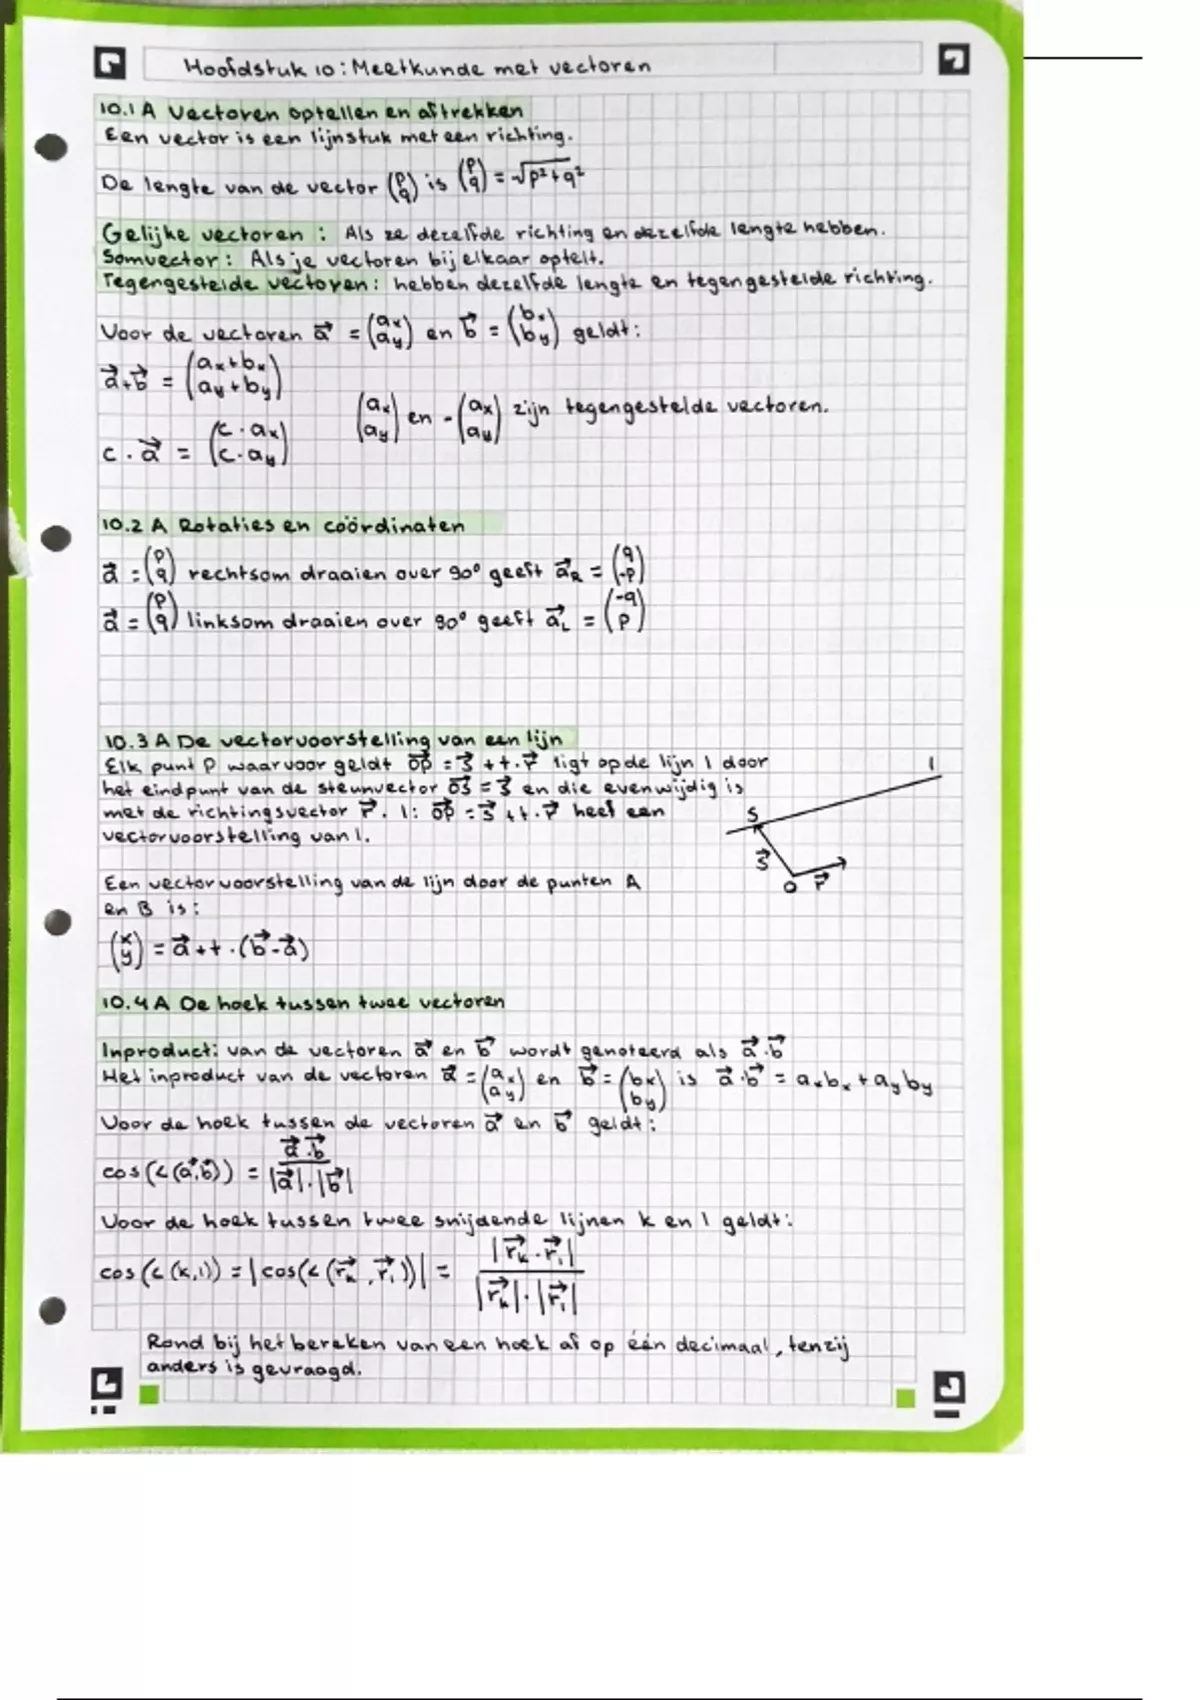 Hoofdstuk 10: Meetkunde met vectoren
10.1 A Vectoren optellen en aftrekken
Een vector is een lijnstuk met een richting.
De lengte van de vector (p q) is (p q) = √p²+q²
Gelijke vectoren : Als ze dezelfde richting en dezelfde lengte hebben.
Somvector : Als je vectoren bij elkaar optelt.
Tegengestelde vectoren : hebben dezelfde lengte en tegengestelde richting.
Voor de vectoren a⃗ = (ax ay) en b⃗ = (bx by) geldt :
a⃗+b⃗ = (ax+bx ay+by)
(ax ay) en -(ax ay) zijn tegengestelde vectoren.
c · a⃗ = (c · ax c · ay)
10.2 A Rotaties en coördinaten
a⃗ = (p q) rechtsom draaien over 90° geeft a⃗R = (q -p)
a⃗ = (p q) linksom draaien over 90° geeft a⃗L = (-q p)
10.3 A De vectorvoorstelling van een lijn
Elk punt P waarvoor geldt OP⃗ = s⃗ + t·r⃗ ligt op de lijn l door
het eindpunt van de steunvector OS⃗ = s⃗ en die evenwijdig is
met de richtingsvector r⃗. l: OP⃗ = s⃗ + t·r⃗ heet een
vectorvoorstelling van l.
l
S
s⃗
O r⃗
Een vectorvoorstelling van de lijn door de punten A
en B is :
(x y) = a⃗ + t · (b⃗ - a⃗)
10.4 A De hoek tussen twee vectoren
Inproduct : van de vectoren a⃗ en b⃗ wordt genoteerd als a⃗·b⃗
Het inproduct van de vectoren a⃗ = (ax ay) en b⃗ = (bx by) is a⃗·b⃗ = axbx + ayby
Voor de hoek tussen de vectoren a⃗ en b⃗ geldt :
cos(∠(a⃗,b⃗)) = a⃗·b⃗ / |a⃗|·|b⃗|
Voor de hoek tussen twee snijdende lijnen k en l geldt :
cos(∠(k,l)) = |cos(∠(r⃗k, r⃗l))| = |r⃗k · r⃗l| / |r⃗k| · |r⃗l|
Rond bij het bereken van een hoek af op één decimaal, tenzij
anders is gevraagd.